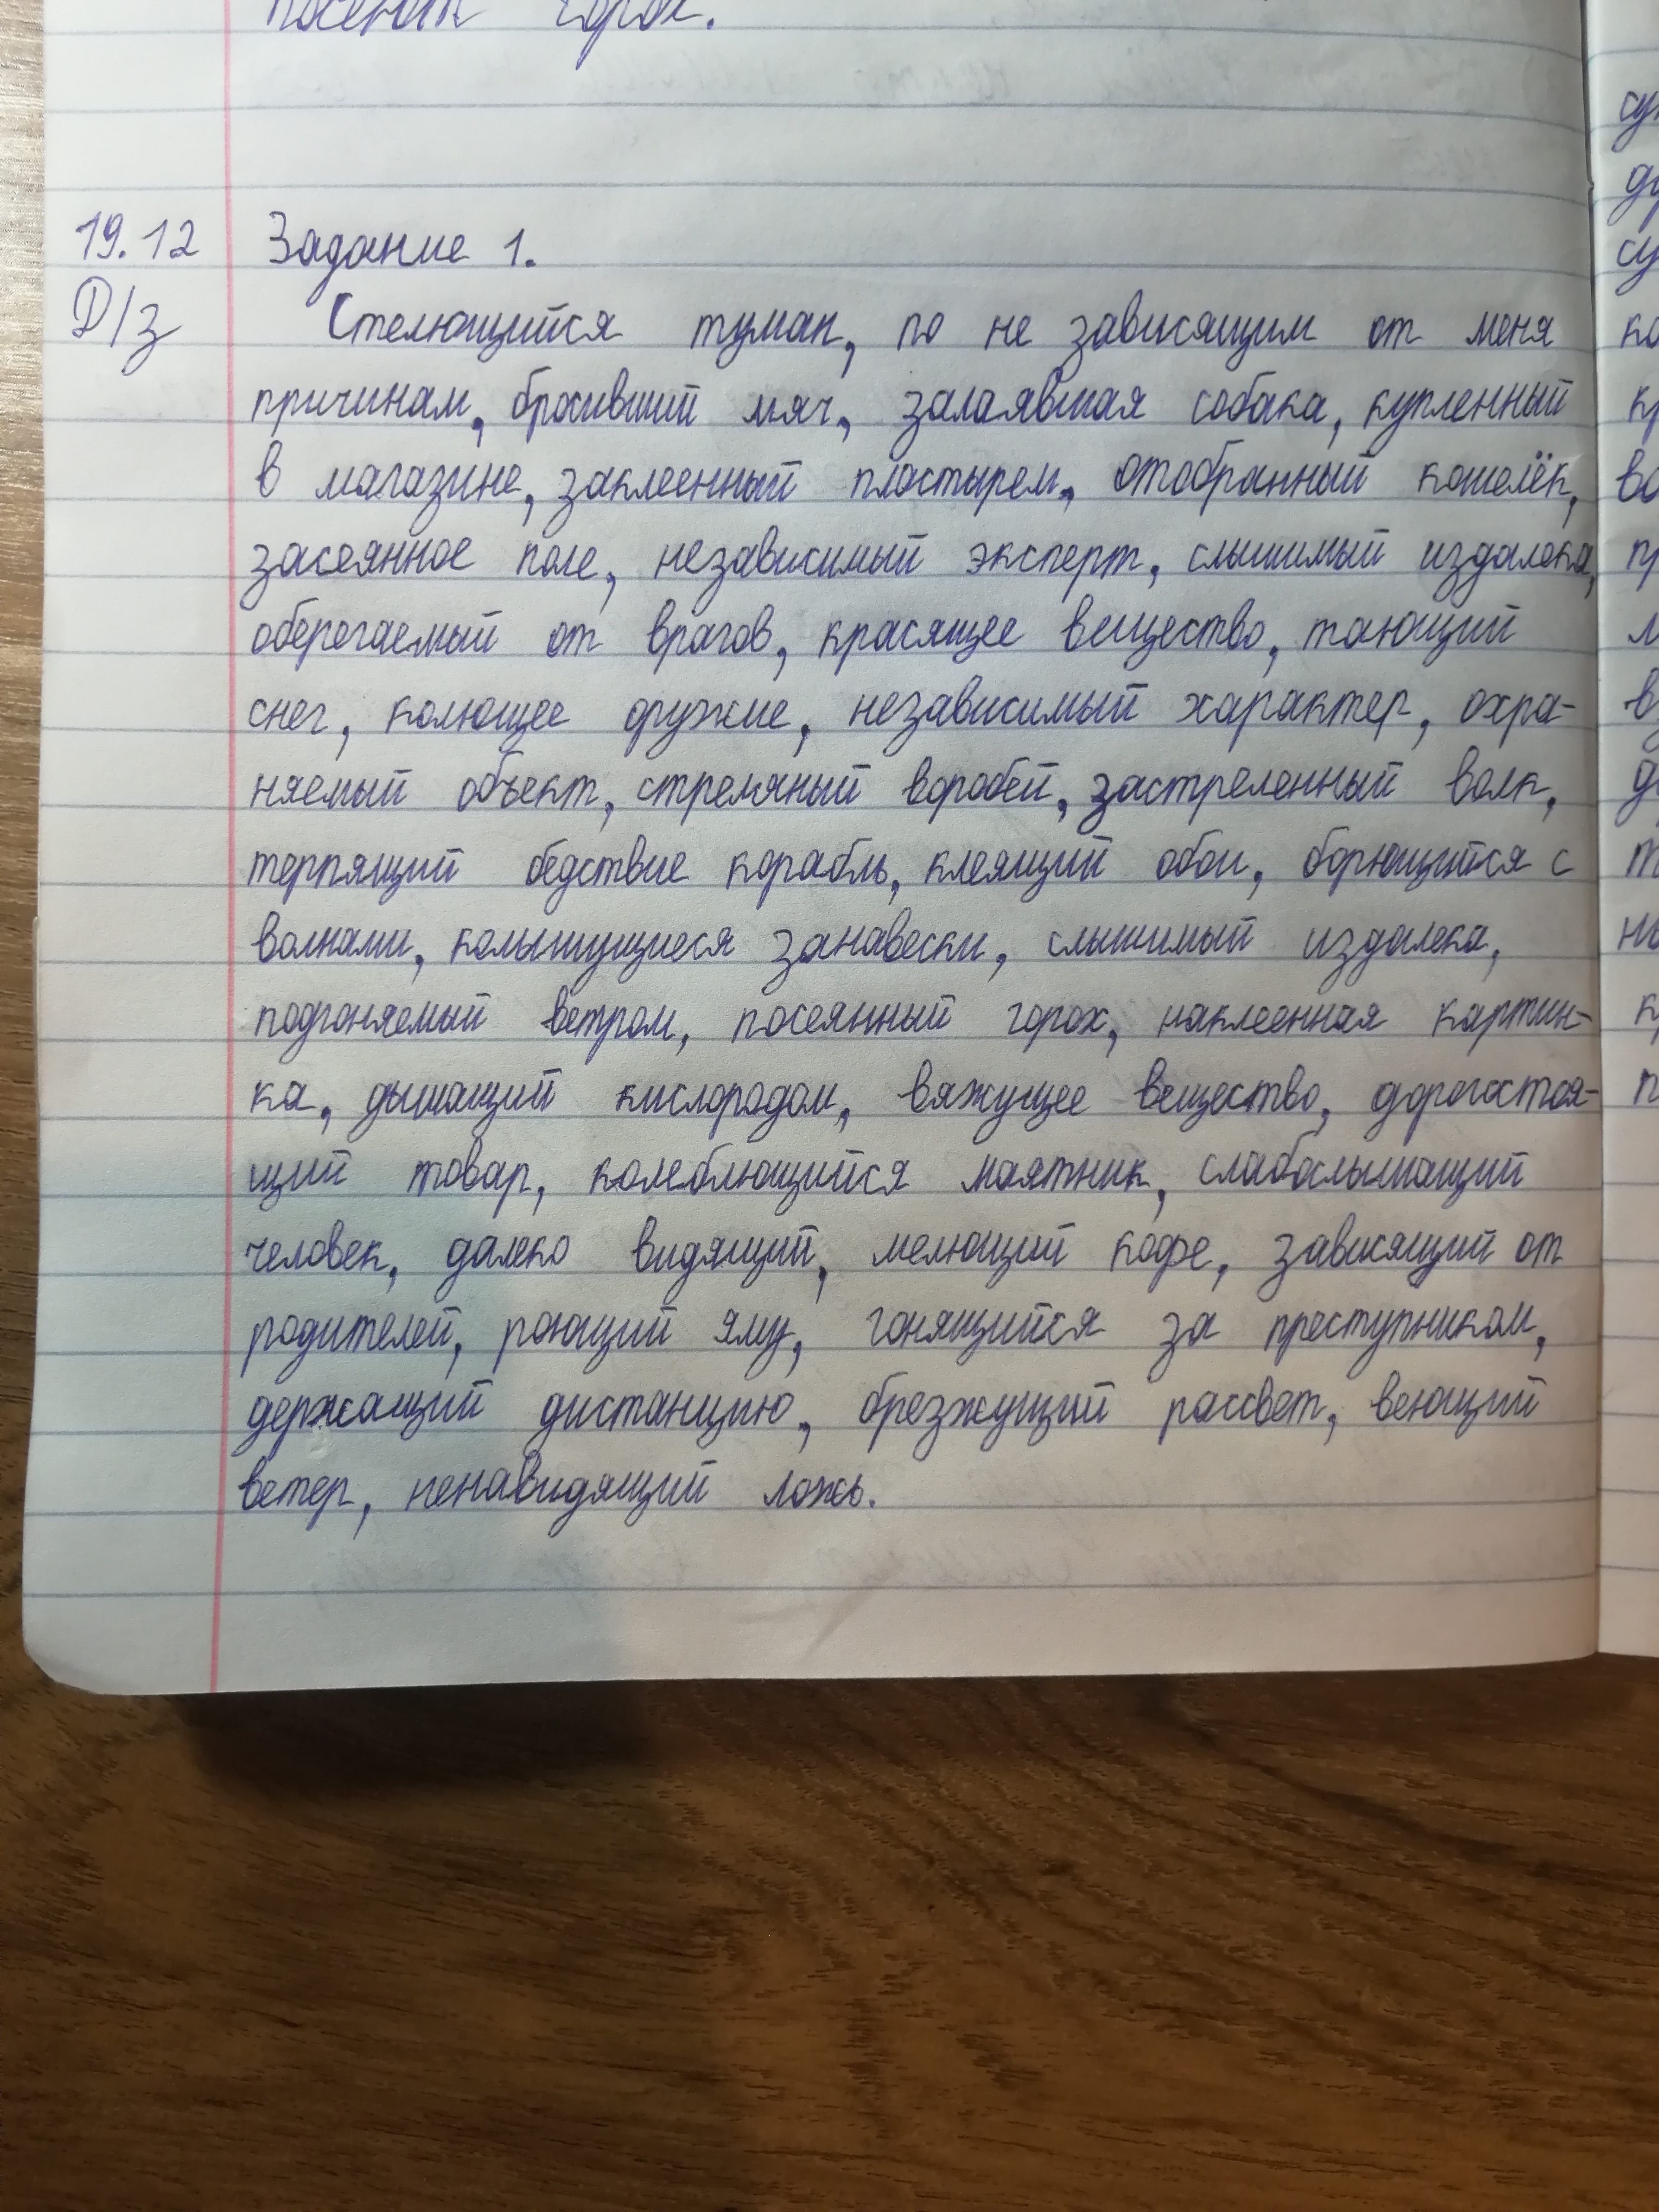 посеяти горох.
19.12 Задание 1.
Д/з Стелющийся туман, по не зависящим от меня
причинам, бросивший мяч, залаявшая собака, купленный
в магазине, заклеенный пластырем, отобранный кошелёк,
засеянное поле, независимый эксперт, слышимый издалека,
оберегаемый от врагов, красящее вещество, тающий
снег, колющее оружие, независимый характер, охра-
няемый объект, стреляный воробей, застреленный волк,
терпящий бедствие корабль, клеящий обои, борющийся с
волнами, колышущиеся занавески, слышимый издалека,
подгоняемый ветром, посеянный горох, наклеенная картин-
ка, дышащий кислородом, вяжущее вещество, дорогостоя-
щий товар, колеблющийся маятник, слабослышащий
человек, далеко видящий, мелющий кофе, зависящий от
родителей, роющий яму, гонящийся за преступником,
держащий дистанцию, брезжущий рассвет, веющий
ветер, ненавидящий ложь.